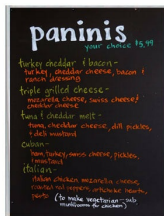 paninis
your choice $5.99
turkey cheddar & bacon -
turkey, cheddar cheese, bacon &
ranch dressing
triple grilled cheese -
mozarella cheese, swiss cheese &
cheddar cheese
tuna & cheddar melt -
tuna, cheddar cheese, dill pickles,
& deli mustard
cuban -
ham, turkey, swiss cheese, pickles,
& mustard
italian -
italian chicken mozarella cheese,
roasted red peppers, artichoke hearts,
pesto
(to make vegetarian - sub
mushrooms for chicken)